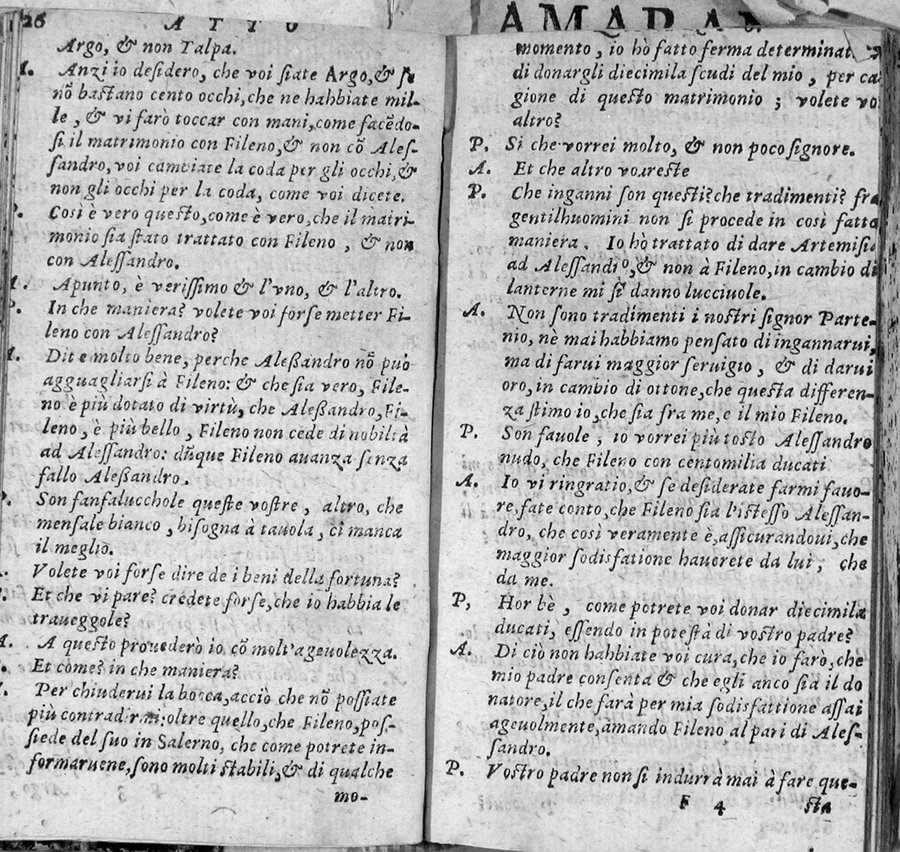 26 ATTO
Argo, & non Talpa.
A. Anzi io desidero, che voi siate Argo, & se
nõ bastano cento occhi, che ne habbiate mil-
le, & vi farò toccar con mani, come facẽdo-
si il matrimonio con Fileno, & non cõ Ales-
sandro, voi cambiate la coda per gli occhi, &
non gli occhi per la coda, come voi dicete.
P. Così è vero questo, come è vero, che il matri-
monio sia stato trattato con Fileno, & non
con Alessandro.
A. Apunto, è verissimo & l'vno, & l'altro.
P. In che maniera? volete voi forse metter Fi-
leno con Alessandro?
A. Dite molto bene, perche Aleßandro nõ può
agguagliarsi à Fileno: & che sia vero, File-
no è più dotato di virtù, che Aleßandro, Fi-
leno, è più bello, Fileno non cede di nobiltà
ad Alessandro: dũque Fileno auanza senza
fallo Aleßandro.
P. Son fanfalucchole queste vostre, altro, che
mensale bianco, bisogna à tauola, ci manca
il meglio.
A. Volete voi forse dire de i beni della fortuna?
P. Et che vi pare? credete forse, che io habbia le
traueggole?
A. A questo prouederò io cõ molt'ageuolezza.
P. Et come? in che maniera?
A. Per chiuderui la bocca, acciò che nõ possiate
più contradirmi: oltre quello, che Fileno, pos-
siede del suo in Salerno, che come potrete in-
formaruene, sono molti stabili, & di qualche
mo-
AMARAN
momento, io hò fatto ferma determinat.
di donargli diecimila scudi del mio, per ca
gione di questo matrimonio; volete vo
altro?
P. Si che vorrei molto, & non poco signore.
A. Et che altro vorreste
P. Che inganni son questi? che tradimenti? fra
gentilhuomini non si procede in così fatta
maniera. Io hò trattato di dare Artemisia
ad Alessandro, & non à Fileno, in cambio di
lanterne mi si danno lucciuole.
A. Non sono tradimenti i nostri signor Parte-
nio, nè mai habbiamo pensato di ingannarui,
ma di farui maggior seruigio, & di darui
oro, in cambio di ottone, che questa differen-
za stimo io, che sia fra me, e il mio Fileno.
P. Son fauole, io vorrei più tosto Alessandro
nudo, che Fileno con centomilia ducati
A. Io vi ringratio, & se desiderate farmi fauo-
re, fate conto, che Fileno sia l'istesso Alessan-
dro, che così veramente è, assicurandoui, che
maggior sodisfatione hauerete da lui, che
da me.
P, Hor bè, come potrete voi donar diecimila
ducati, essendo in potestà di vostro padre?
A. Di ciò non habbiate voi cura, che io farò, che
mio padre consenta & che egli anco sia il do
natore, il che farà per mia sodisfattione assai
ageuolmente, amando Fileno al pari di Ales-
sandro.
P. Vostro padre non si indurrà mai à fare que-
F 4 sta